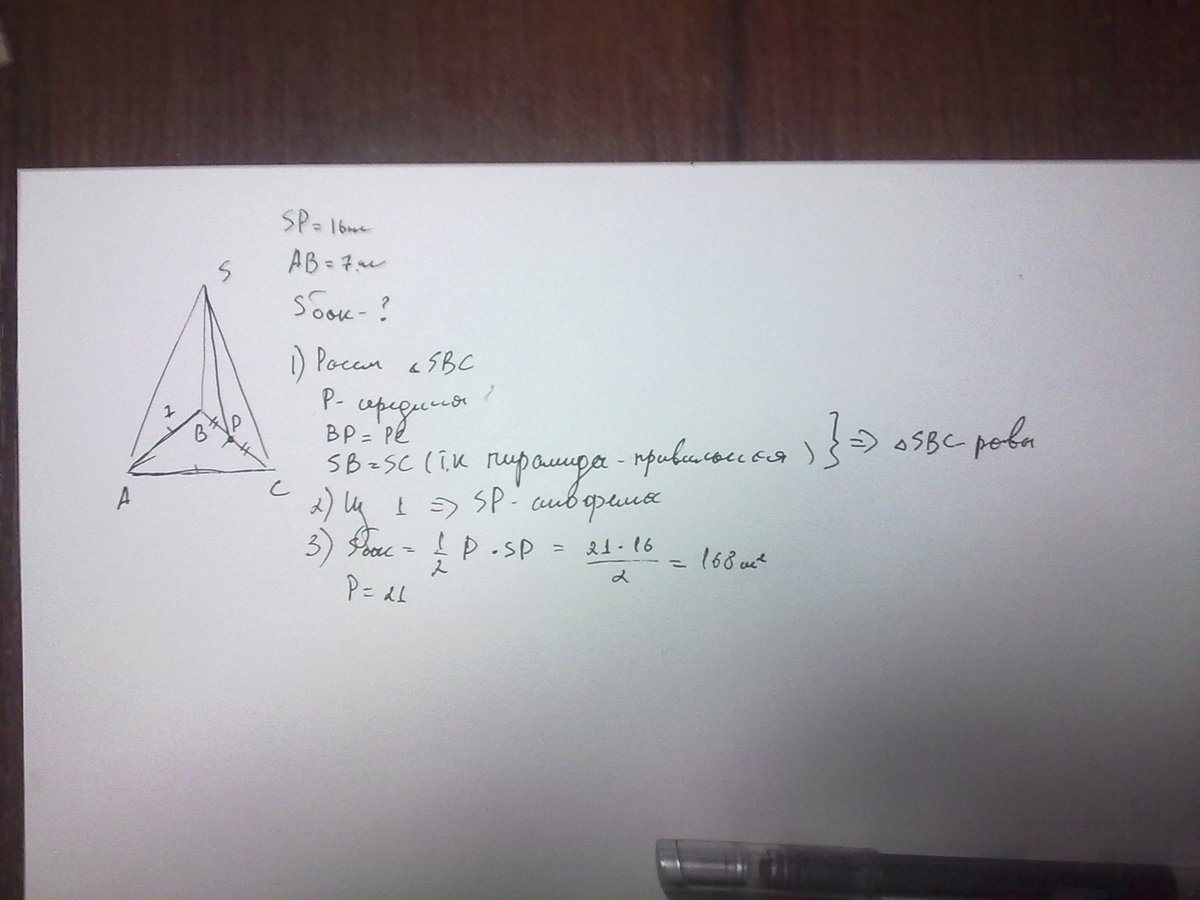 SP = 16см
AB = 7см
Sбок - ?
S
1
B
P
A
C
1) Рассм △SBC
P - середина
BP = PC
SB = SC (т.к пирамида - правильная) } => △SBC - равн
2) Из 1 => SP - апофема
3) Sбок = 1/2 P · SP = 21 · 16 / 2 = 168 см²
P = 21